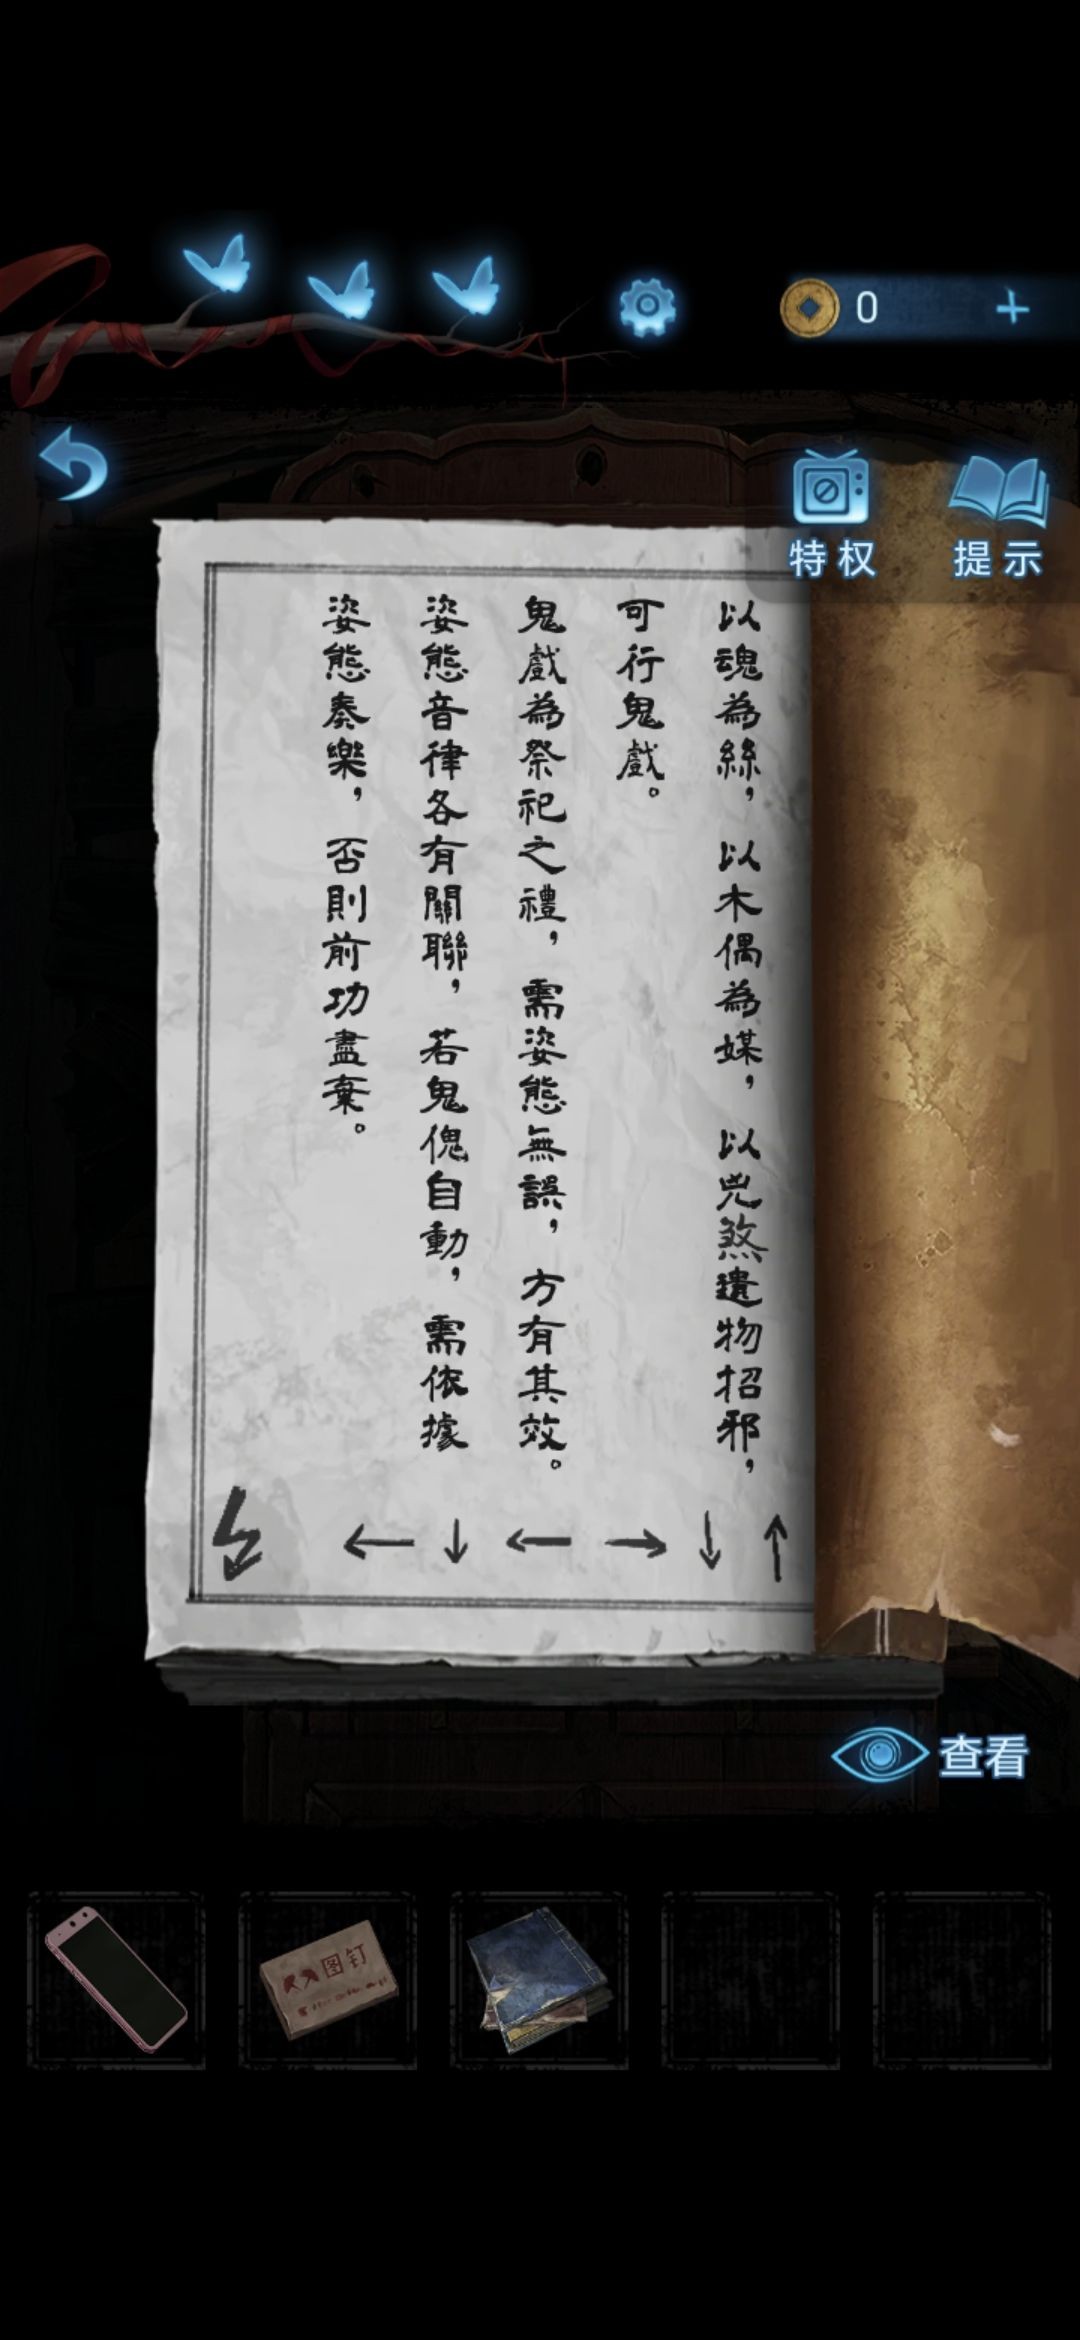 0
特权
提示
以魂為絲，以木偶為媒，以兇煞遺物招邪，
可行鬼戲。
鬼戲為祭祀之禮，需姿態無誤，方有其效。
姿態音律各有關聯，若鬼傀自動，需依據
姿態奏樂，否則前功盡棄。
← ↓ ← → ↓ ↑
查看
图钉